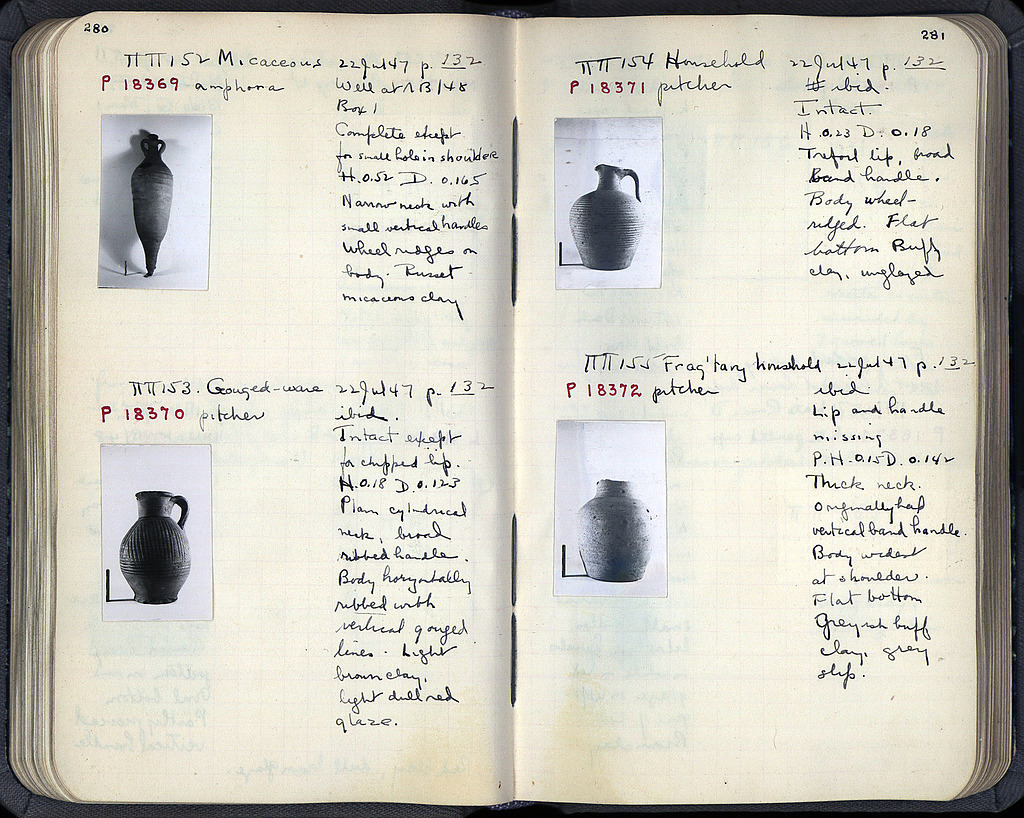 280
ΠΠ152 Micaceous 22Jul47 p. 132
P 18369 amphora Well at ΛB/48
Box 1
Complete except
for small hole in shoulder
H. 0.52 D. 0.165
Narrow neck with
small vertical handles
Wheel ridges on
body. Russet
micaceous clay
ΠΠ153. Gouged-ware 22Jul47 p. 132
P 18370 pitcher ibid.
Intact except
for chipped lip.
H. 0.18 D. 0.123
Plain cylindrical
neck, broad
ribbed handle.
Body horizontally
ribbed with
vertical gouged
lines. Light
brown clay,
light dull red
glaze.
281
ΠΠ154 Household 22Jul47 p. 132
P 18371 pitcher ibid.
Intact.
H. 0.23 D. 0.18
Trefoil lip, broad
band handle.
Body wheel-
ridged. Flat
bottom Buff
clay, unglazed
ΠΠ155 Frag'tary household 22Jul47 p. 132
P 18372 pitcher ibid
Lip and handle
missing
P.H. 0.15 D. 0.142
Thick neck.
Originally had
vertical band handle.
Body widest
at shoulder.
Flat bottom
Greyish buff
clay, grey
slip.